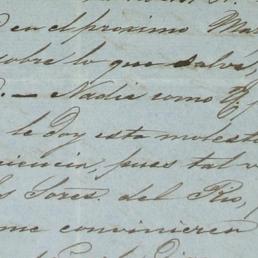 en el proximo Mar
sobre lo que salva,
— Nadie como
le doy esta molest
ciencia, pues tal v
s Sores. del Rio,
me convinieren